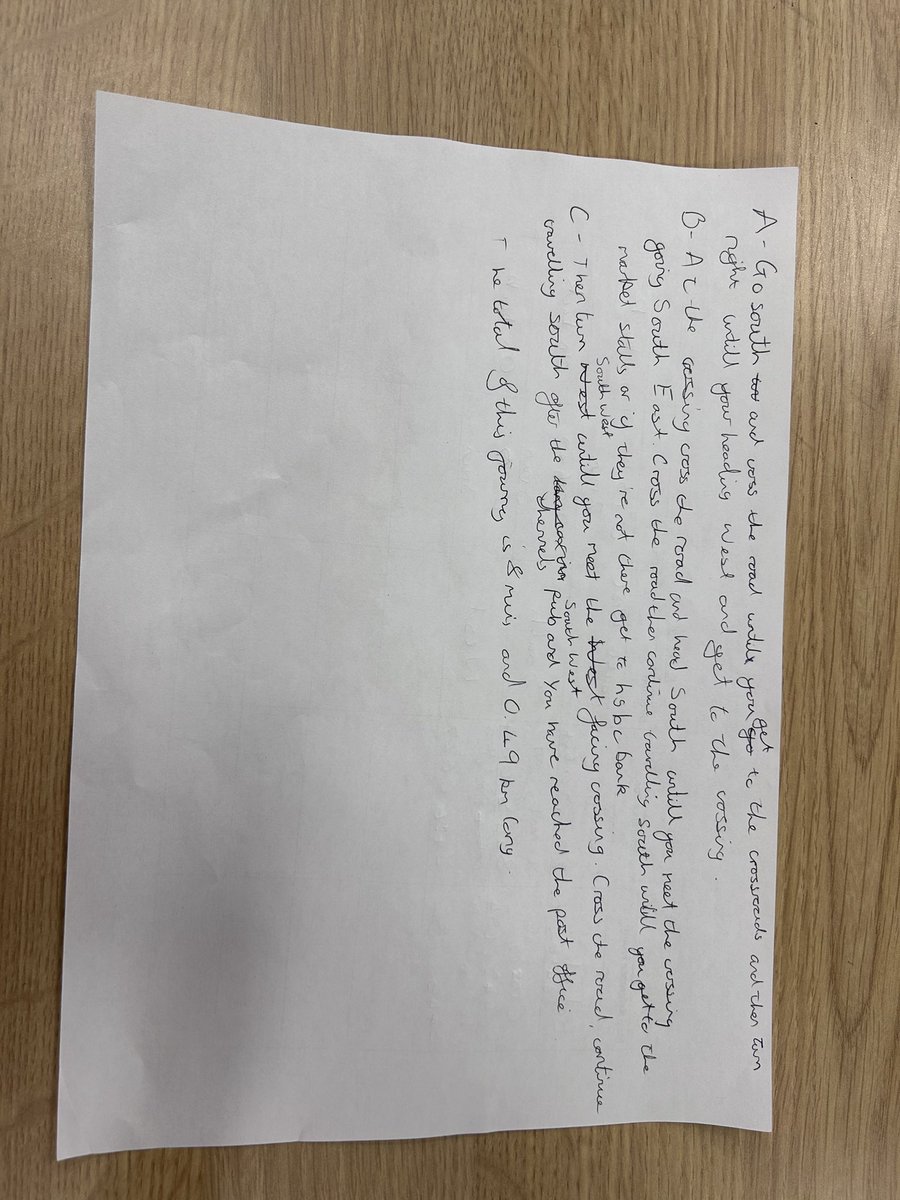 A - Go south and cross the road untill you get to the crossroads and then turn
right untill your heading west and get to the crossing.
B - At the crossing cross the road and head South untill you meet the crossing
going South East. Cross the road then continue travelling south untill you get to the
market stalls or if they're not there get to hsbc bank
C - Then turn South West untill you meet the South West facing crossing. Cross the road, continue
travelling south after the pub and you have reached the post office
The total of this journey is 8 mins and 0.49 km long.